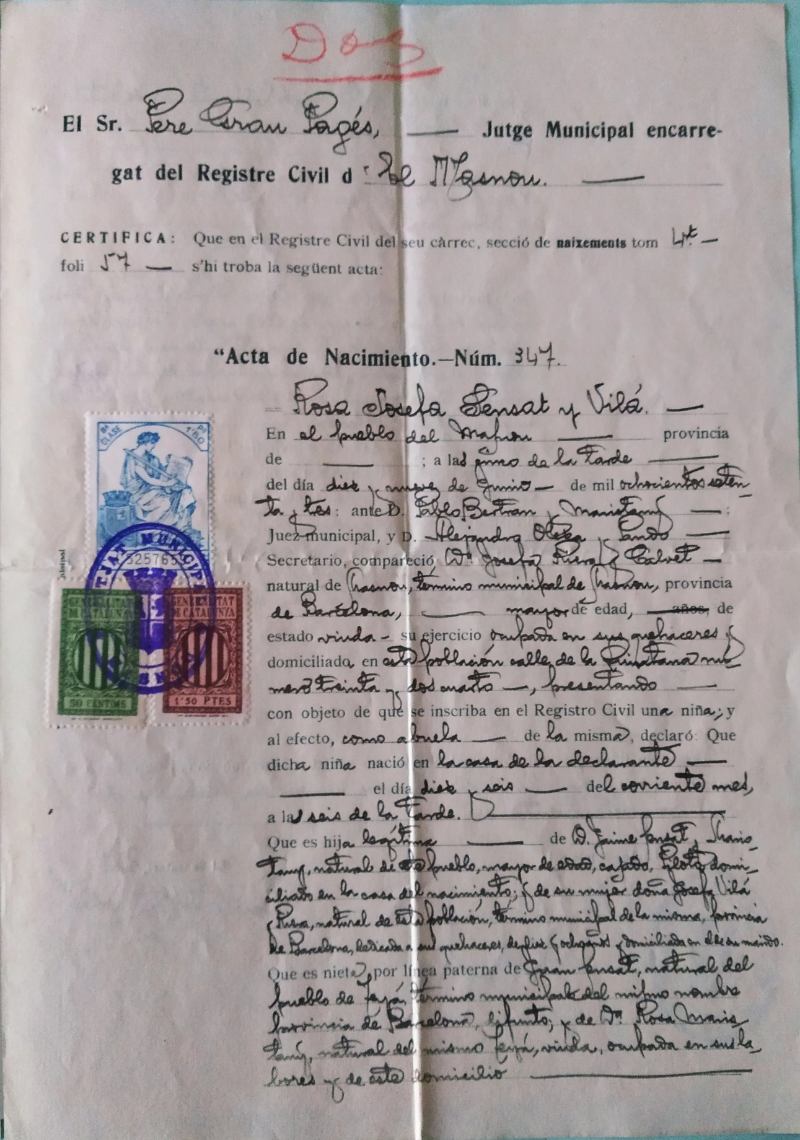 Dos
El Sr. Pere Grau Pagés, Jutge Municipal encarre-
gat del Registre Civil d'El Masnou.
CERTIFICA: Que en el Registre Civil del seu càrrec, secció de naixements tom 4t
foli 57 s'hi troba la següent acta:
"Acta de Nacimiento.—Núm. 347.
Rosa Josefa Sensat y Vilá.
En el pueblo del Masnou provincia
de ; a las cinco de la tarde
del día diez y nueve de Junio de mil ochocientos seten-
ta y tres: ante D. Pablo Bertran y Maristany ;
Juez municipal, y D. Alejandro
Secretario, compareció Dª Josefa Riusa y Calvet
natural de Masnou, término municipal de Masnou, provincia
de Barcelona, mayor de edad, años, de
estado viuda su ejercicio ocupada en sus quehaceres y
domiciliado en esta población calle de la nú-
mero treinta y dos cuarto , presentando
con objeto de que se inscriba en el Registro Civil una niña; y
al efecto, como abuela de la misma, declaró: Que
dicha niña nació en la casa de la declarante
el día diez y seis del corriente mes,
a las seis de la tarde.
Que es hija legítima de D. Jaime Sensat y Maris-
tany, natural de este pueblo, mayor de edad, casado, Piloto domi-
ciliado en la casa del nacimiento; y de su mujer doña Josefa Vilá
y Riusa, natural de esta población, término municipal de la misma, provincia
de Barcelona, dedicada a sus quehaceres, de diez y ocho años y domiciliada en el de su marido.
Que es nieta por línea paterna de Juan Sensat, natural del
pueblo de Teyá, término municipal del mismo nombre
provincia de Barcelona, difunto, y de Dª Rosa Maris-
tany, natural del mismo Teyá, viuda, ocupada en sus la-
bores y de este domicilio
8ª CLASE 1'50
3257659
JUTJAT MUNICIPAL
GENERALITAT DE CATALUNYA
50 CENTIMS
GENERALITAT DE CATALUNYA
1'50 PTES